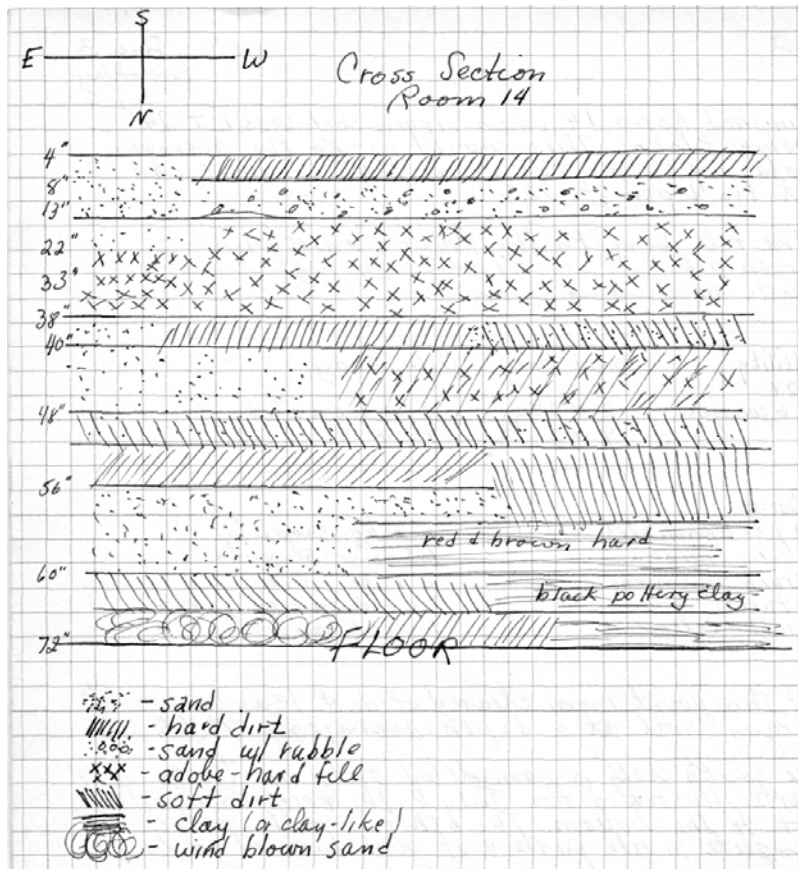 S
E W
N
Cross Section
Room 14
4"
8"
13"
22"
33"
38"
40"
48"
56"
red & brown hard
60"
black pottery clay
72"
FLOOR
- sand
- hard dirt
- sand w/ rubble
- adobe-hard fill
- soft dirt
- clay (or clay-like)
- wind blown sand